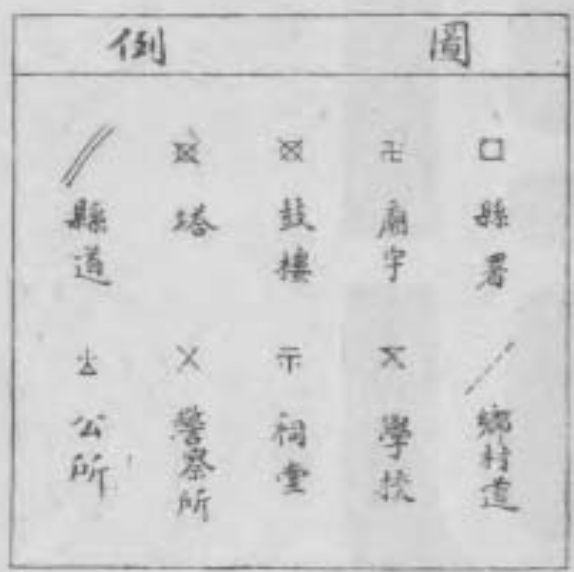 圖例
縣署
廟宇
鼓樓
塔
縣道
鄉村道
學校
祠堂
警察所
公所